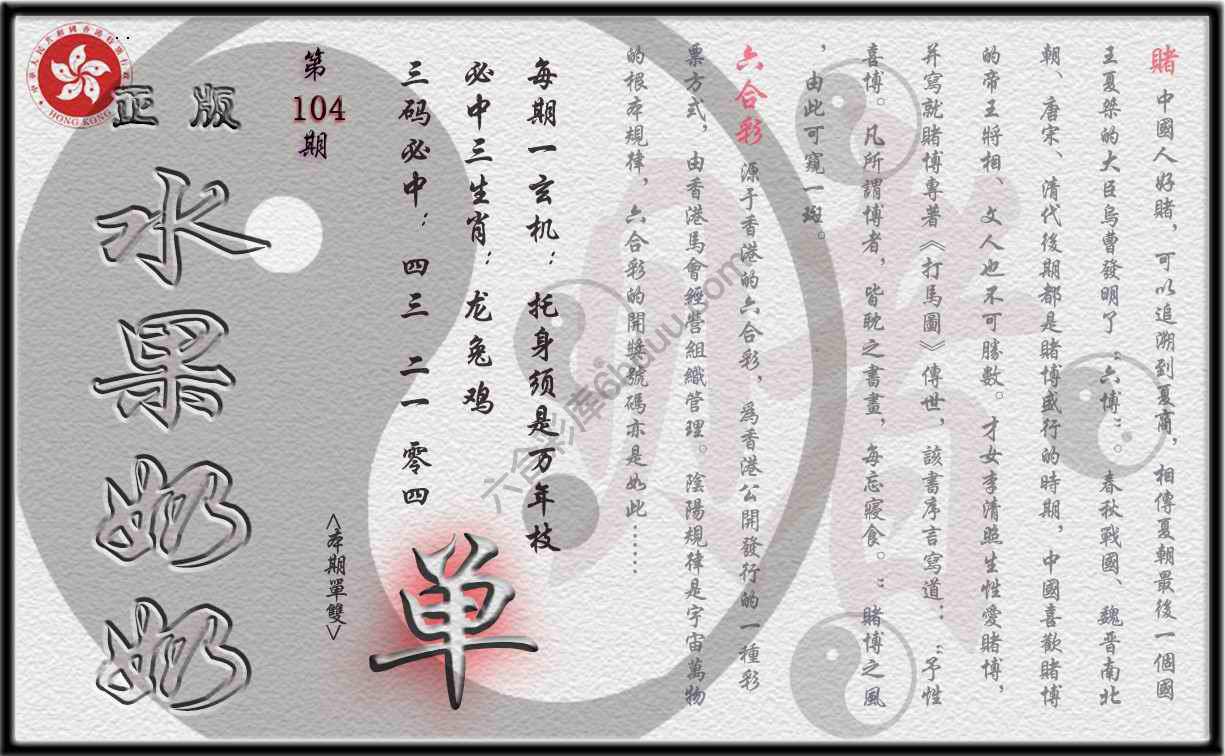 賭 中國人好賭，可以追溯到夏商，相傳夏朝最後一個國
王夏桀的大臣烏曹發明了“六博”。春秋戰國、魏晋南北
朝、唐宋、清代後期都是賭博盛行的時期，中國喜歡賭博
的帝王將相、文人也不可勝數。才女李清照生性愛賭博，
并寫就賭博專著《打馬圖》傳世，該書序言寫道：“予性
喜博。凡所謂博者，皆耽之書畫，每忘寢食。”賭博之風
，由此可窺一斑。
六合彩 源于香港的六合彩，爲香港公開發行的一種彩
票方式，由香港馬會經營組織管理。陰陽規律是宇宙萬物
的根本規律，六合彩的開獎號碼亦是如此……
每期一玄机：托身须是万年枝
必中三生肖：龙兔鸡
三码必中：四三 二一 零四
第
104
期
<本期單雙>
单
正版
水果奶奶
HONG KONG
六合彩库6hduu.com